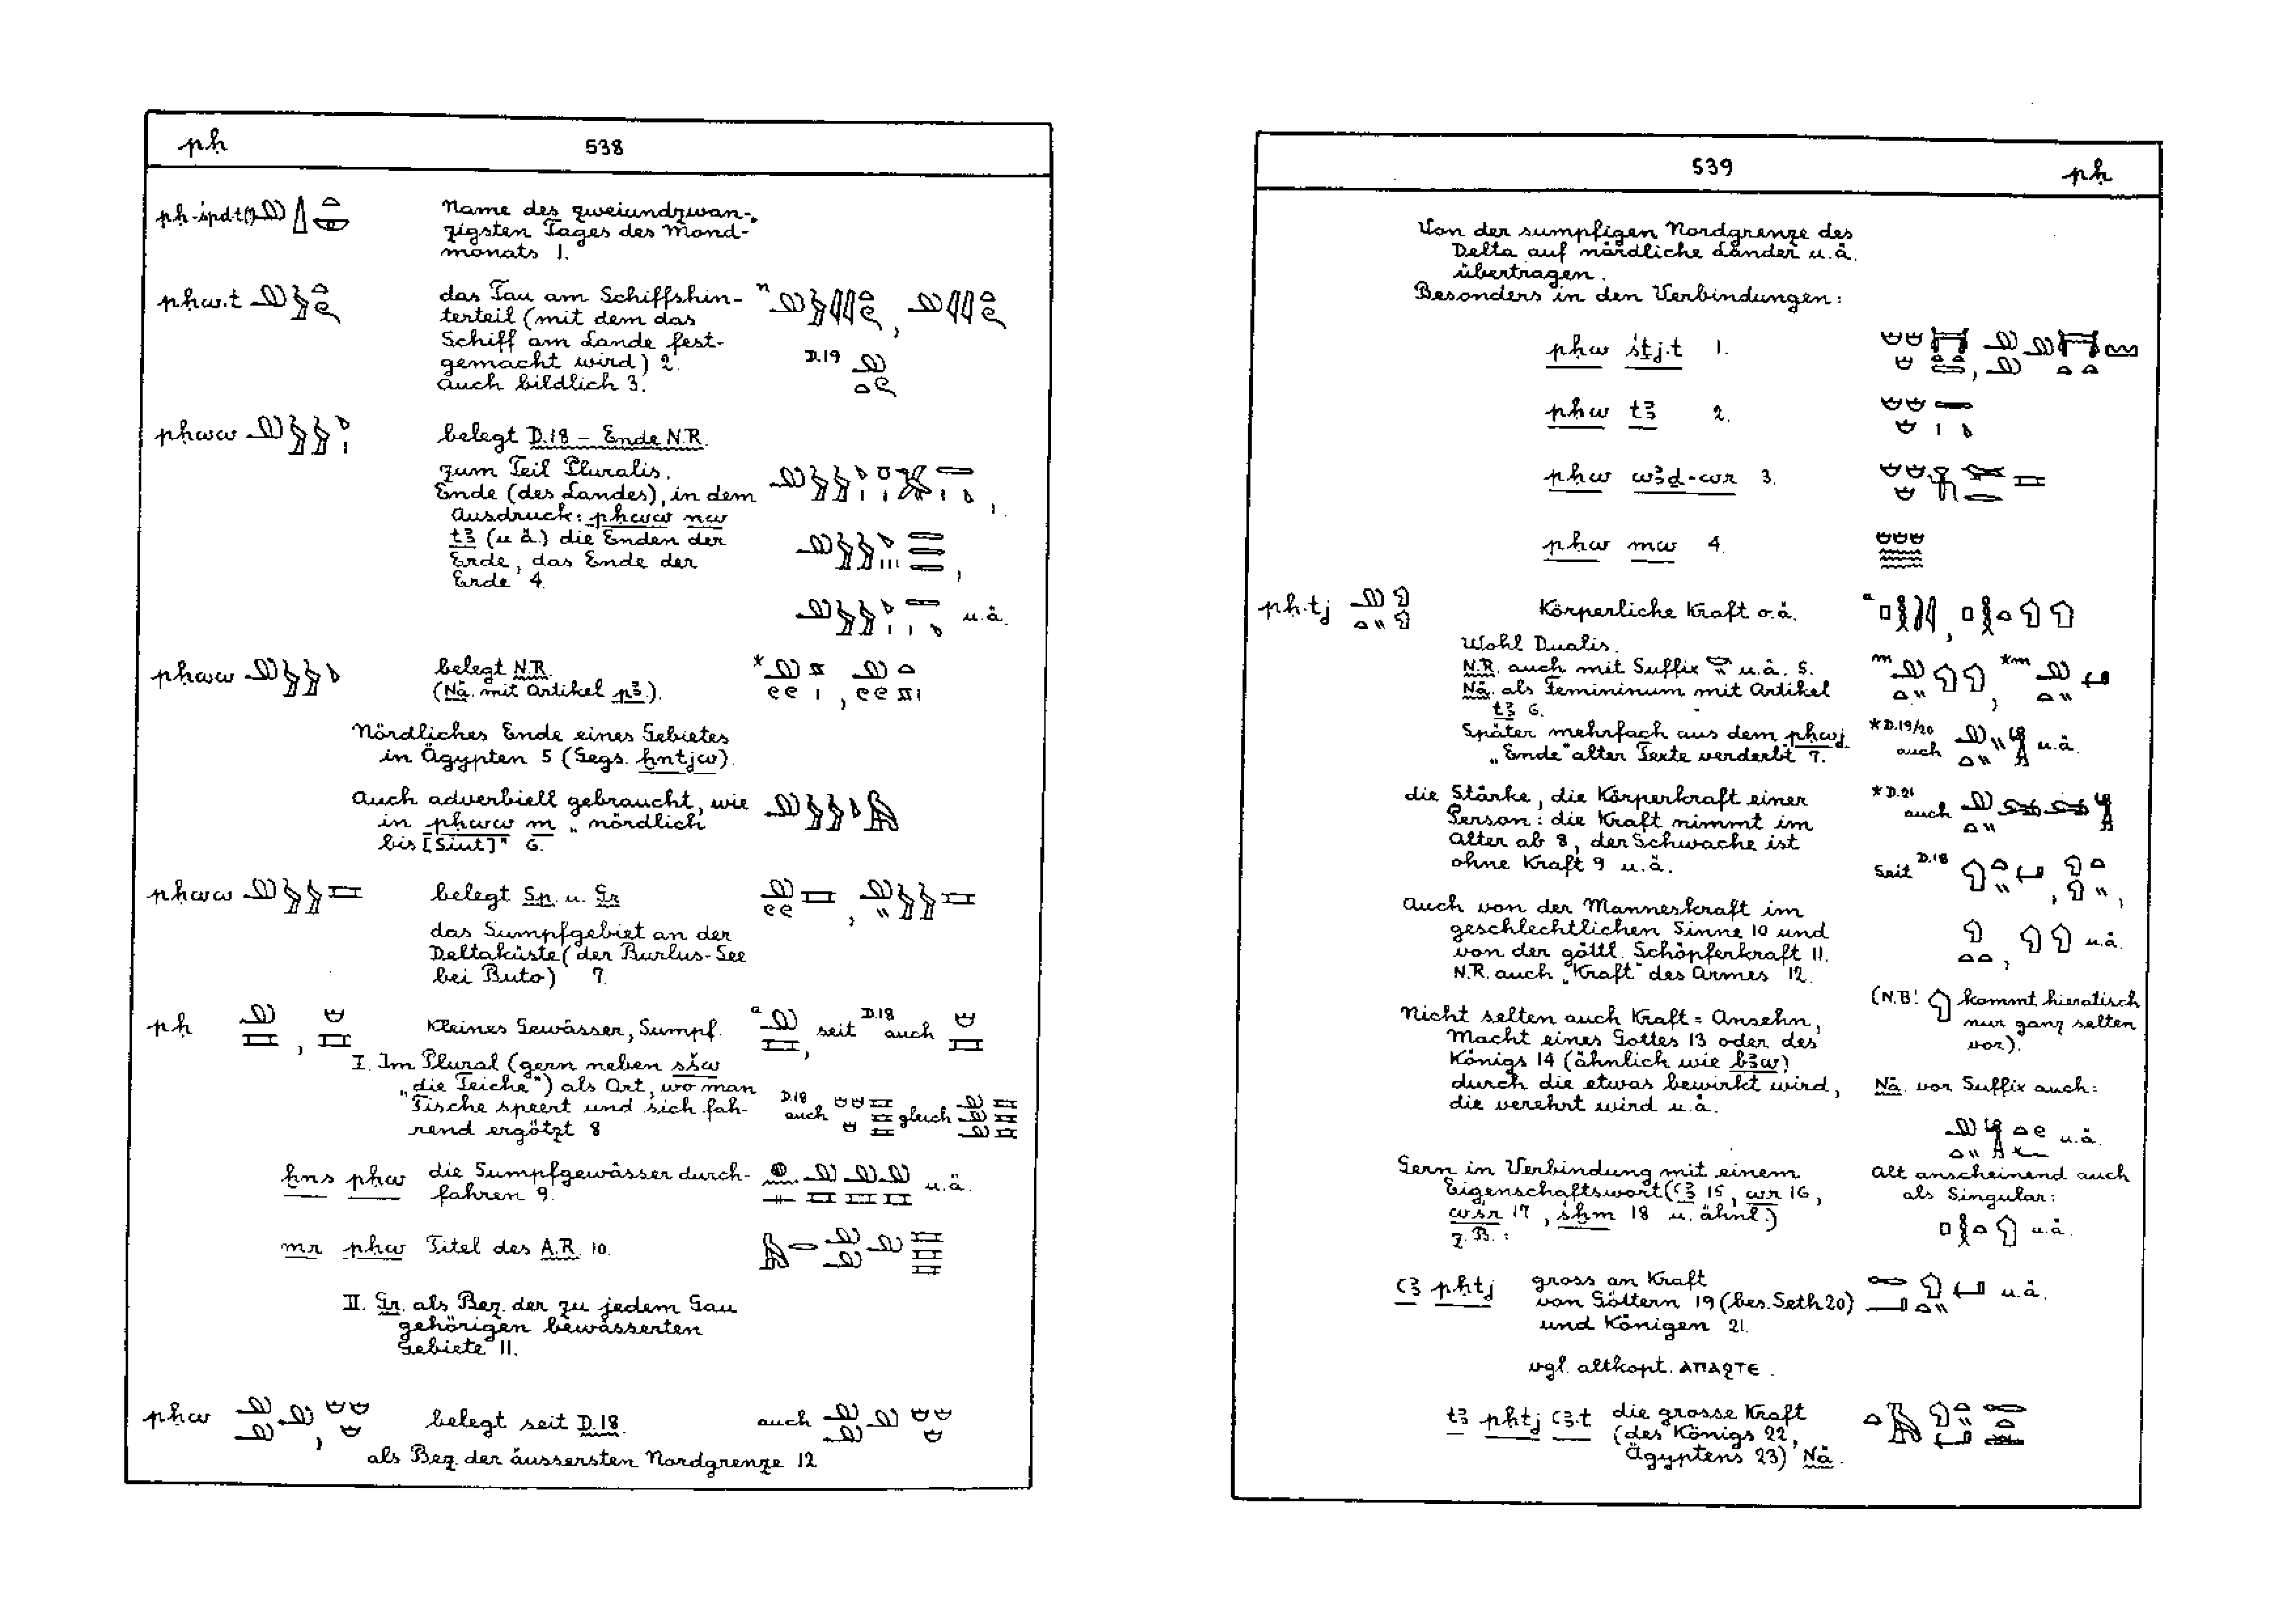 pḥ
538
pḥ-śpd.t(?)
Name des zweiundzwan-
zigsten Tages des Mond-
monats 1.
pḥw.t
das Tau am Schiffshin-
terteil (mit dem das
Schiff am Lande fest-
gemacht wird) 2.
auch bildlich 3.
n
D.19
pḥww
belegt D.18 – Ende N.R.
zum Teil Pluralis.
Ende (des Landes), in dem
Ausdruck: pḥww nw
tꜣ (u.ä.) die Enden der
Erde, das Ende der
Erde 4.
u.ä.
pḥww
belegt N.R.
(Nä. mit Artikel pꜣ.).
Nördliches Ende eines Gebietes
in Ägypten 5 (Gegs. ḫntjw).
Auch adverbiell gebraucht, wie
in pḥww m „nördlich
bis [Siut]" 6.
pḥww
belegt Sp. u. Gr.
das Sumpfgebiet an der
Deltaküste (der Burlus-See
bei Buto) 7.
pḥ
Kleines Gewässer, Sumpf.
a
seit D.18 auch
I. Im Plural (gern neben sšw
„die Teiche") als Ort, wo man
Fische speert und sich fah-
rend ergötzt 8
D.18
auch
gleich
ḫns pḥw die Sumpfgewässer durch-
fahren 9.
u.ä.
mr pḥw Titel des A.R. 10.
II. Gr. als Bez. der zu jedem Gau
gehörigen bewässerten
Gebiete 11.
pḥw
belegt seit D.18.
auch
als Bez. der äussersten Nordgrenze 12
539
pḥ
Von der sumpfigen Nordgrenze des
Delta auf nördliche Länder u.ä.
übertragen.
Besonders in den Verbindungen:
pḥw śṯj.t 1.
pḥw tꜣ 2.
pḥw wꜣḏ-wr 3.
pḥw mw 4.
pḥ.tj
Körperliche Kraft o.ä.
a
Wohl Dualis.
N.R. auch mit Suffix u.ä. 5.
Nä. als Femininum mit Artikel
tꜣ 6.
Später mehrfach aus dem pḥwj
„Ende" alter Texte verderbt 7.
m
*m
*D.19/20
auch
u.ä.
die Stärke, die Körperkraft einer
Person: die Kraft nimmt im
Alter ab 8, der Schwache ist
ohne Kraft 9 u.ä.
*D.21
auch
Seit D.18
Auch von der Manneskraft im
geschlechtlichen Sinne 10 und
von der göttl. Schöpferkraft 11.
N.R. auch „Kraft" des Armes 12.
u.ä.
Nicht selten auch Kraft = Ansehn,
Macht eines Gottes 13 oder des
Königs 14 (ähnlich wie bꜣw)
durch die etwas bewirkt wird,
die verehrt wird u.ä.
(N.B! kommt hieratisch
nur ganz selten
vor).
Nä. vor Suffix auch:
u.ä.
Gern in Verbindung mit einem
Eigenschaftswort (ꜥꜣ 15, wr 16,
wśr 17, śḫm 18 u. ähnl.)
z.B.:
Alt anscheinend auch
als Singular:
u.ä.
ꜥꜣ pḥtj
gross an Kraft
von Göttern 19 (bes. Seth 20)
und Königen 21.
u.ä.
vgl. altkopt. ⲁⲡⲁϩⲧⲉ.
tꜣ pḥtj ꜥꜣ.t
die grosse Kraft
(des Königs 22,
Ägyptens 23) Nä.